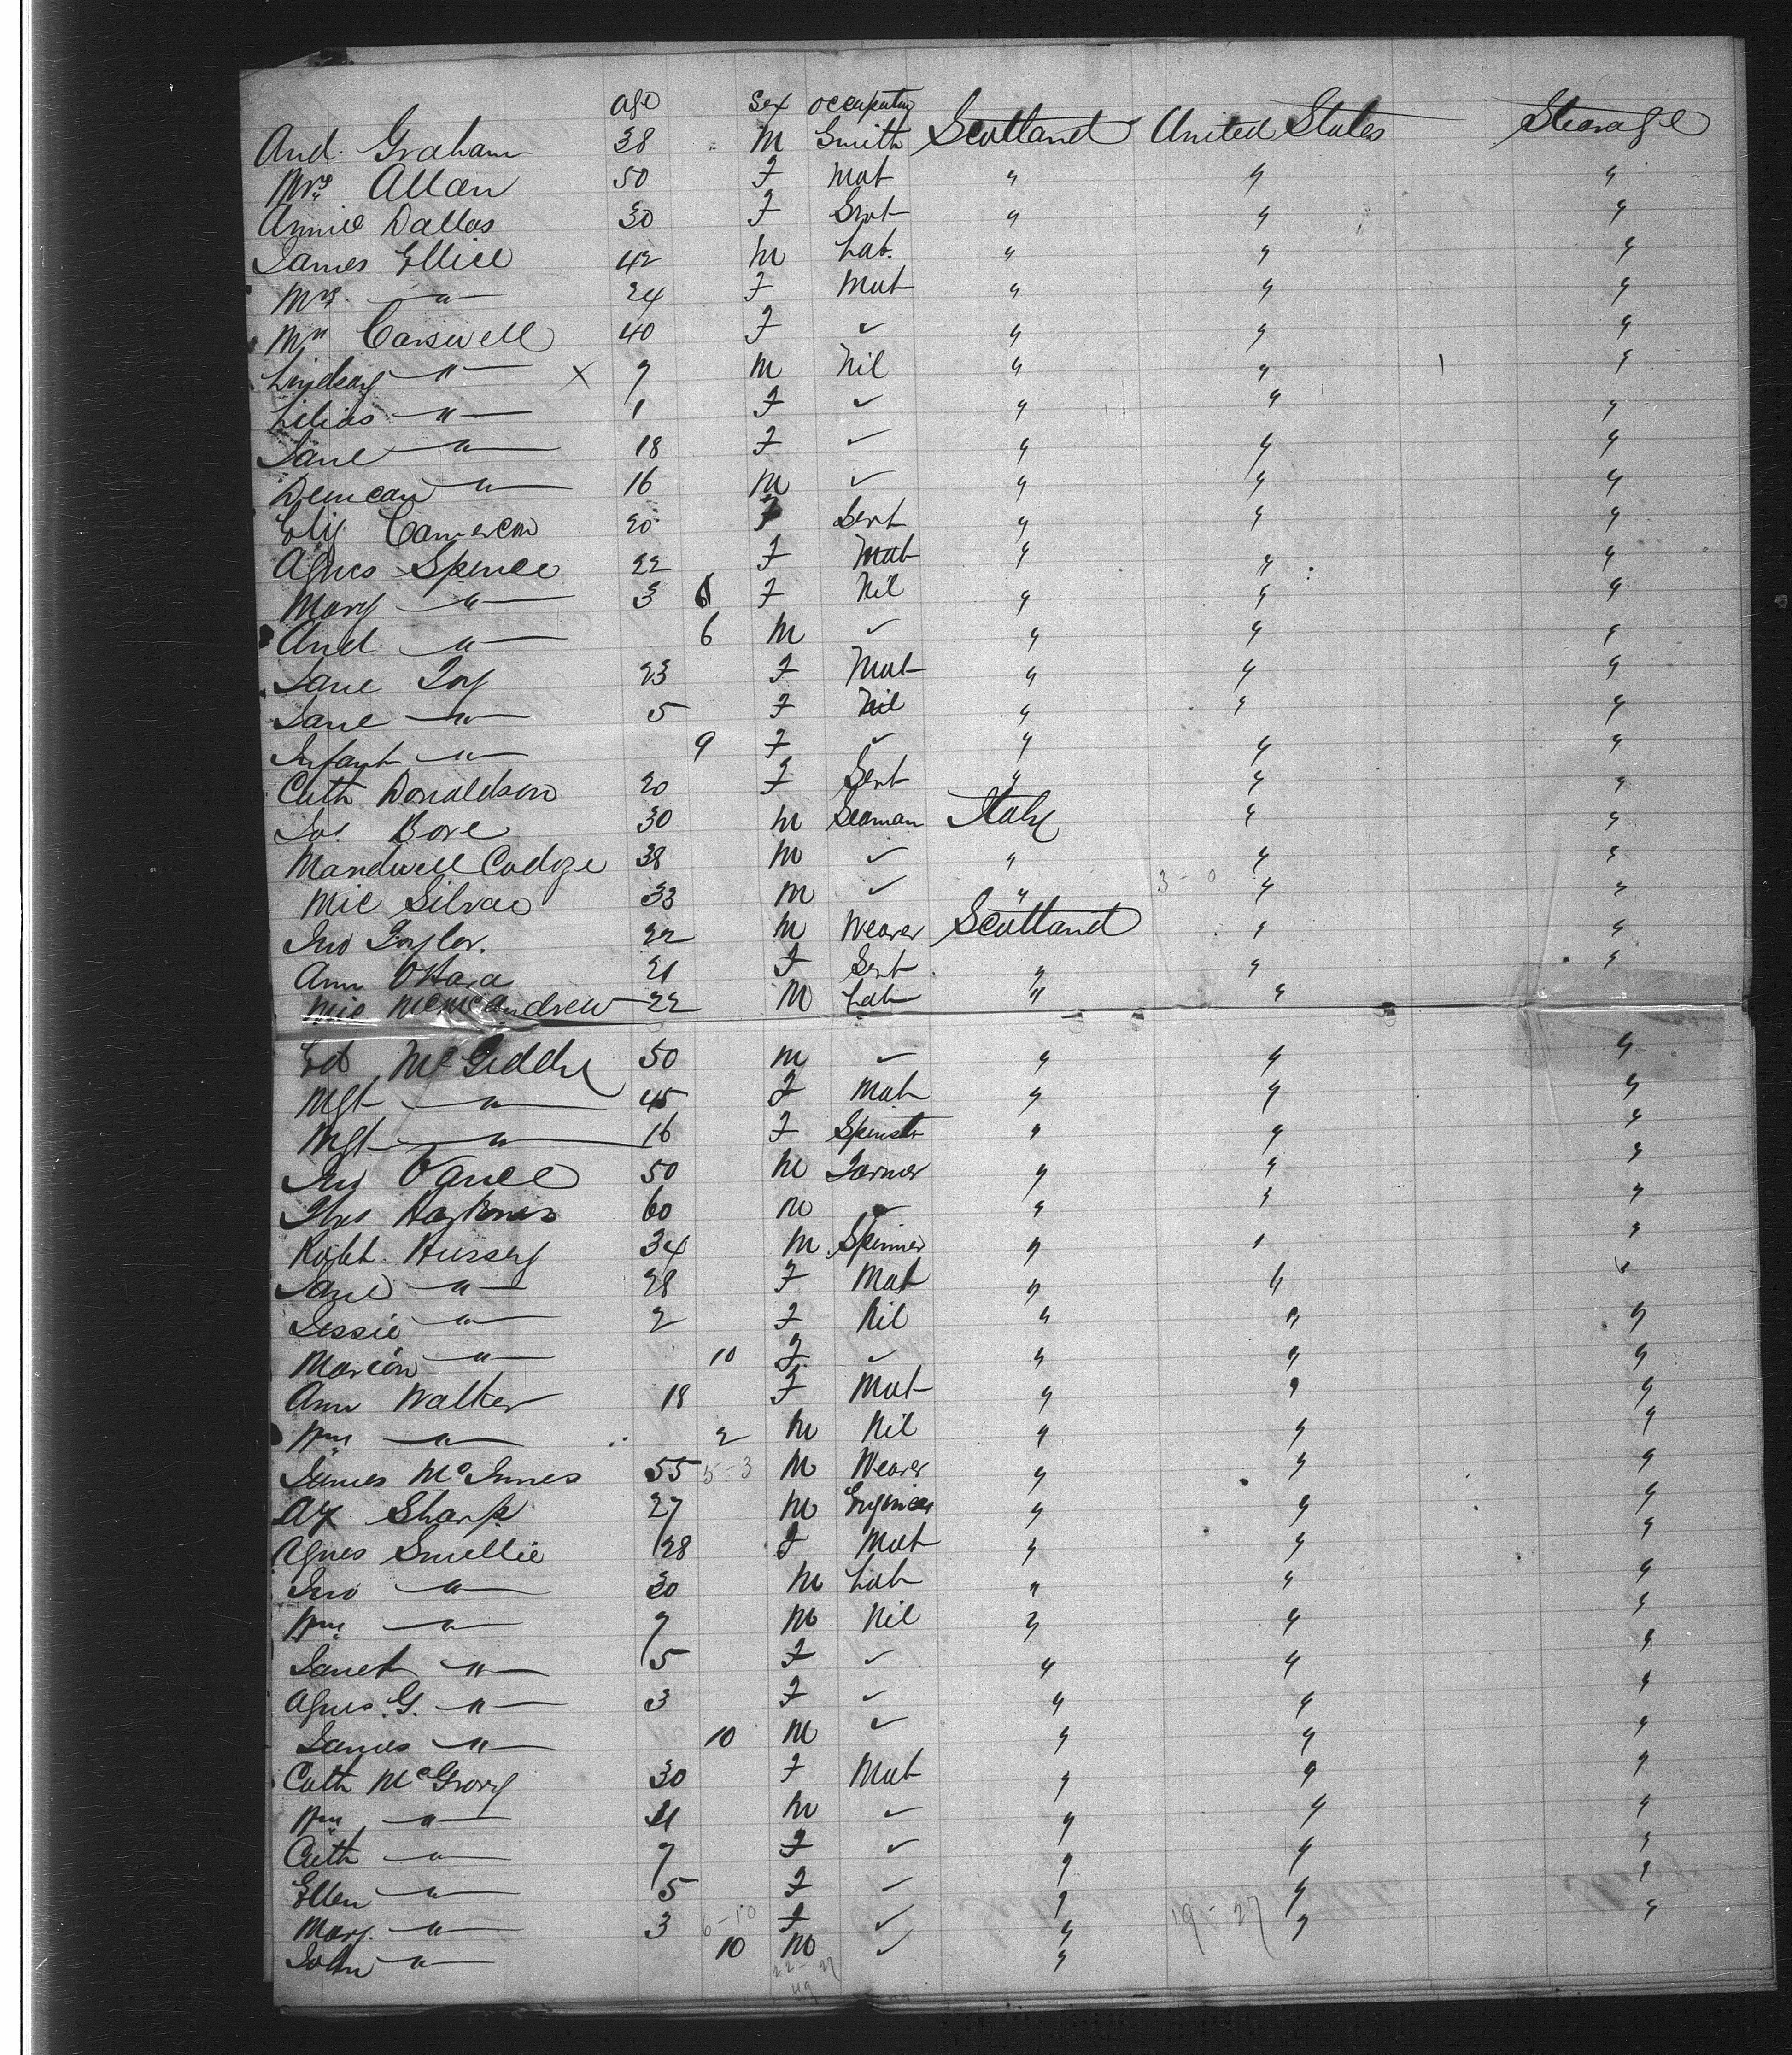 age sex occupation
And. Graham 38 M Smith Scotland United States Steerage
Mrs Allan 50 F Mat " " "
Annie Dallas 30 F Servt " " "
James Ellice 42 M Lab. " " "
Mrs. —"— 24 F Mat " " "
Mrs Carswell 40 F ✓ " " "
Lindsay —"— X 7 M Nil " " "
Lilias —"— 1 F ✓ " " "
Jane —"— 18 F ✓ " " "
Duncan —"— 16 M ✓ " " "
Eliz Cameron 20 F Servt " " "
Agnes Spence 22 F Mat " " "
Mary —"— 3 F Nil " " "
And —"— 6 M ✓ " " "
Jane Foy 23 F Mat " " "
Jane —"— 5 F Nil " " "
Infant —"— 9 F ✓ " " "
Cath Donaldson 20 F Servt " " "
Jos. Bove 30 M Seaman Italy " "
Mandwell 38 M ✓ " " "
Mic Silvao 33 M ✓ " 3-0 " "
Jno Taylor. 22 M Weaver Scotland " "
Ann OHara 21 F Servt " " "
Mic McAndrew 22 M Lab " " "
Ed 50 M ✓ " " "
Mgt —"— 45 F Mat " " "
Mgt —"— 16 F Spinster " " "
Jno Vance 50 M Farmer " " "
Thos 60 M ✓ " " "
Robt. Hussey 34 M Spinner " " "
Jane —"— 28 F Mat " " "
Jessie —"— 2 F Nil " " "
Marion —"— 10 F ✓ " " "
Ann Walker 18 F Mat " " "
Wm —"— 2 M Nil " " "
James McInnes 55 5-3 M Weaver " " "
Alx Sharp 27 M Engineer " " "
Agnes Smellie 28 F Mat " " "
Jno —"— 30 M Lab " " "
Wm —"— 7 M Nil " " "
Janet —"— 5 F ✓ " " "
Agnes. G. —"— 3 F ✓ " " "
James —"— 10 M ✓ " " "
Cath McGrory 30 F Mat " " "
Wm —"— 11 M ✓ " " "
Cath —"— 7 F ✓ " " "
Ellen —"— 5 F ✓ " " "
Mary. —"— 3 6-10 F ✓ " 19-27 " "
John —"— 10 M ✓ "
22-27
49